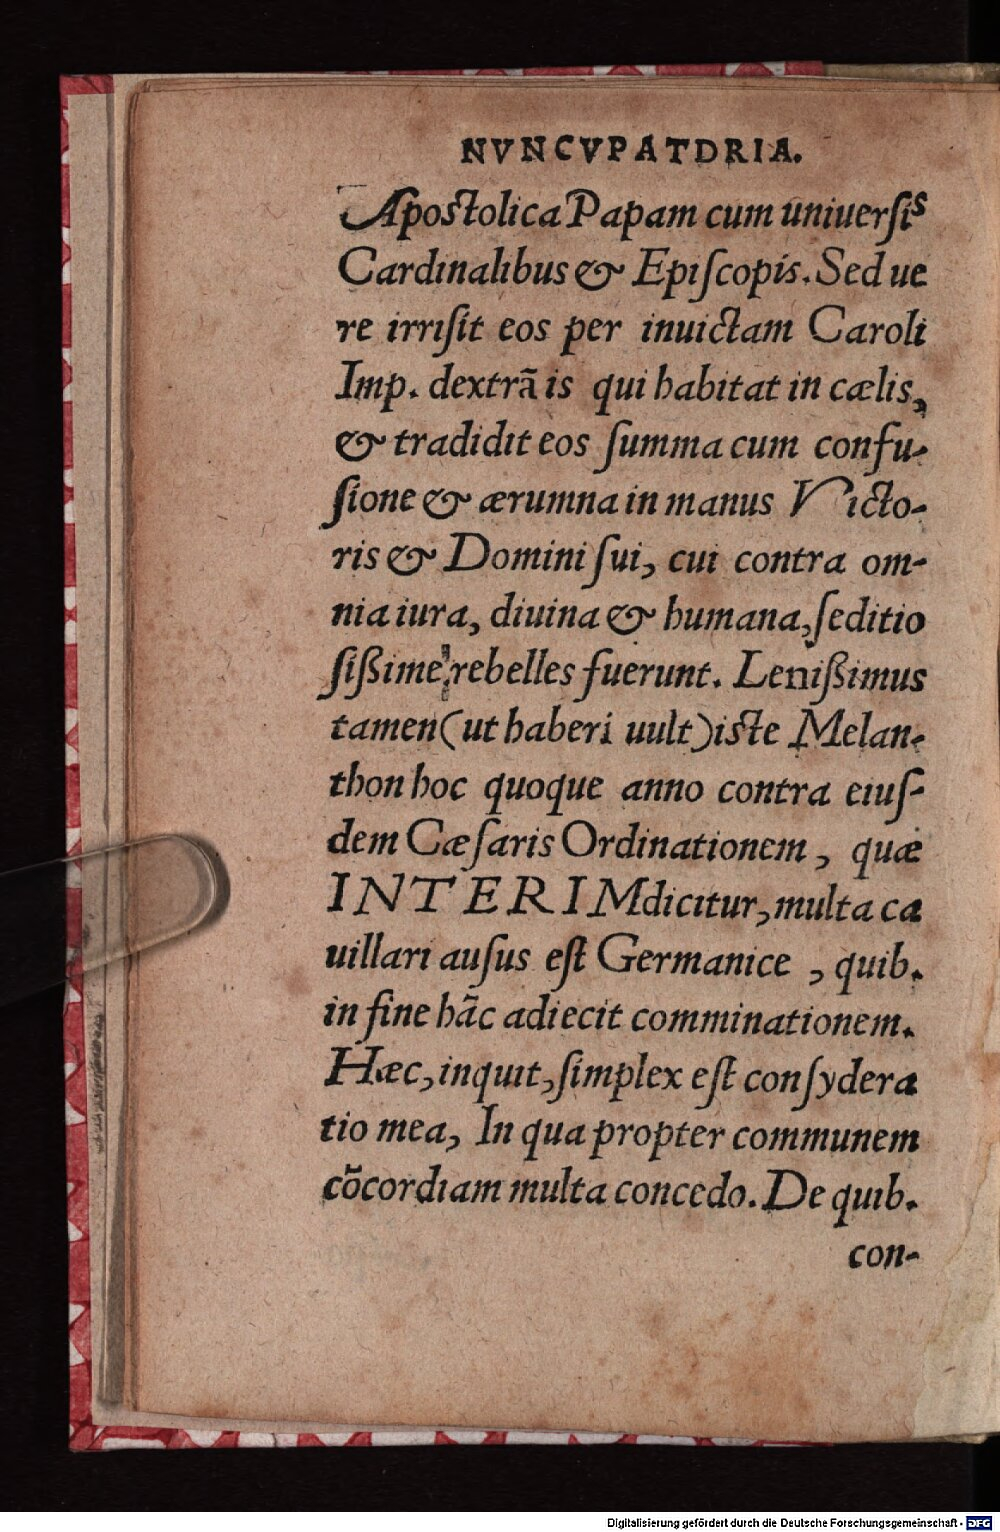 NVNCVPATORIA.
Apostolica Papam cum uniuersis
Cardinalibus & Episcopis. Sed ue
re irrisit eos per inuictam Caroli
Imp. dextrā is qui habitat in cælis,
& tradidit eos summa cum confu-
sione & ærumna in manus Victo-
ris & Domini sui, cui contra om-
nia iura, diuina & humana, seditio
sißime rebelles fuerunt. Lenißimus
tamen (ut haberi uult) iste Melan-
thon hoc quoque anno contra eius-
dem Cæsaris Ordinationem, quæ
INTERIM dicitur, multa ca
uillari ausus est Germanice, quib.
in fine hāc adiecit comminationem.
Hæc, inquit, simplex est consydera
tio mea, In qua propter communem
cōcordiam multa concedo. De quib.
con-
Digitalisierung gefördert durch die Deutsche Forschungsgemeinschaft - DFG